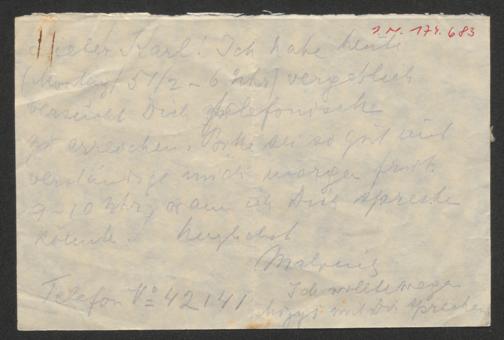 J. N. 174.683
Lieber Karl. Ich habe heute
(Montag) 5 1/2 – 6 Uhr) vergeblich
versucht Dich telefonisch
zu erreichen. Bitte sei so gut und
verständige mich morgen früh
9–10 Uhr, wann ich Dich sprechen
könnte. Herzlichst
Ich wollte wegen
mit Dir sprechen
Telefon No 42141